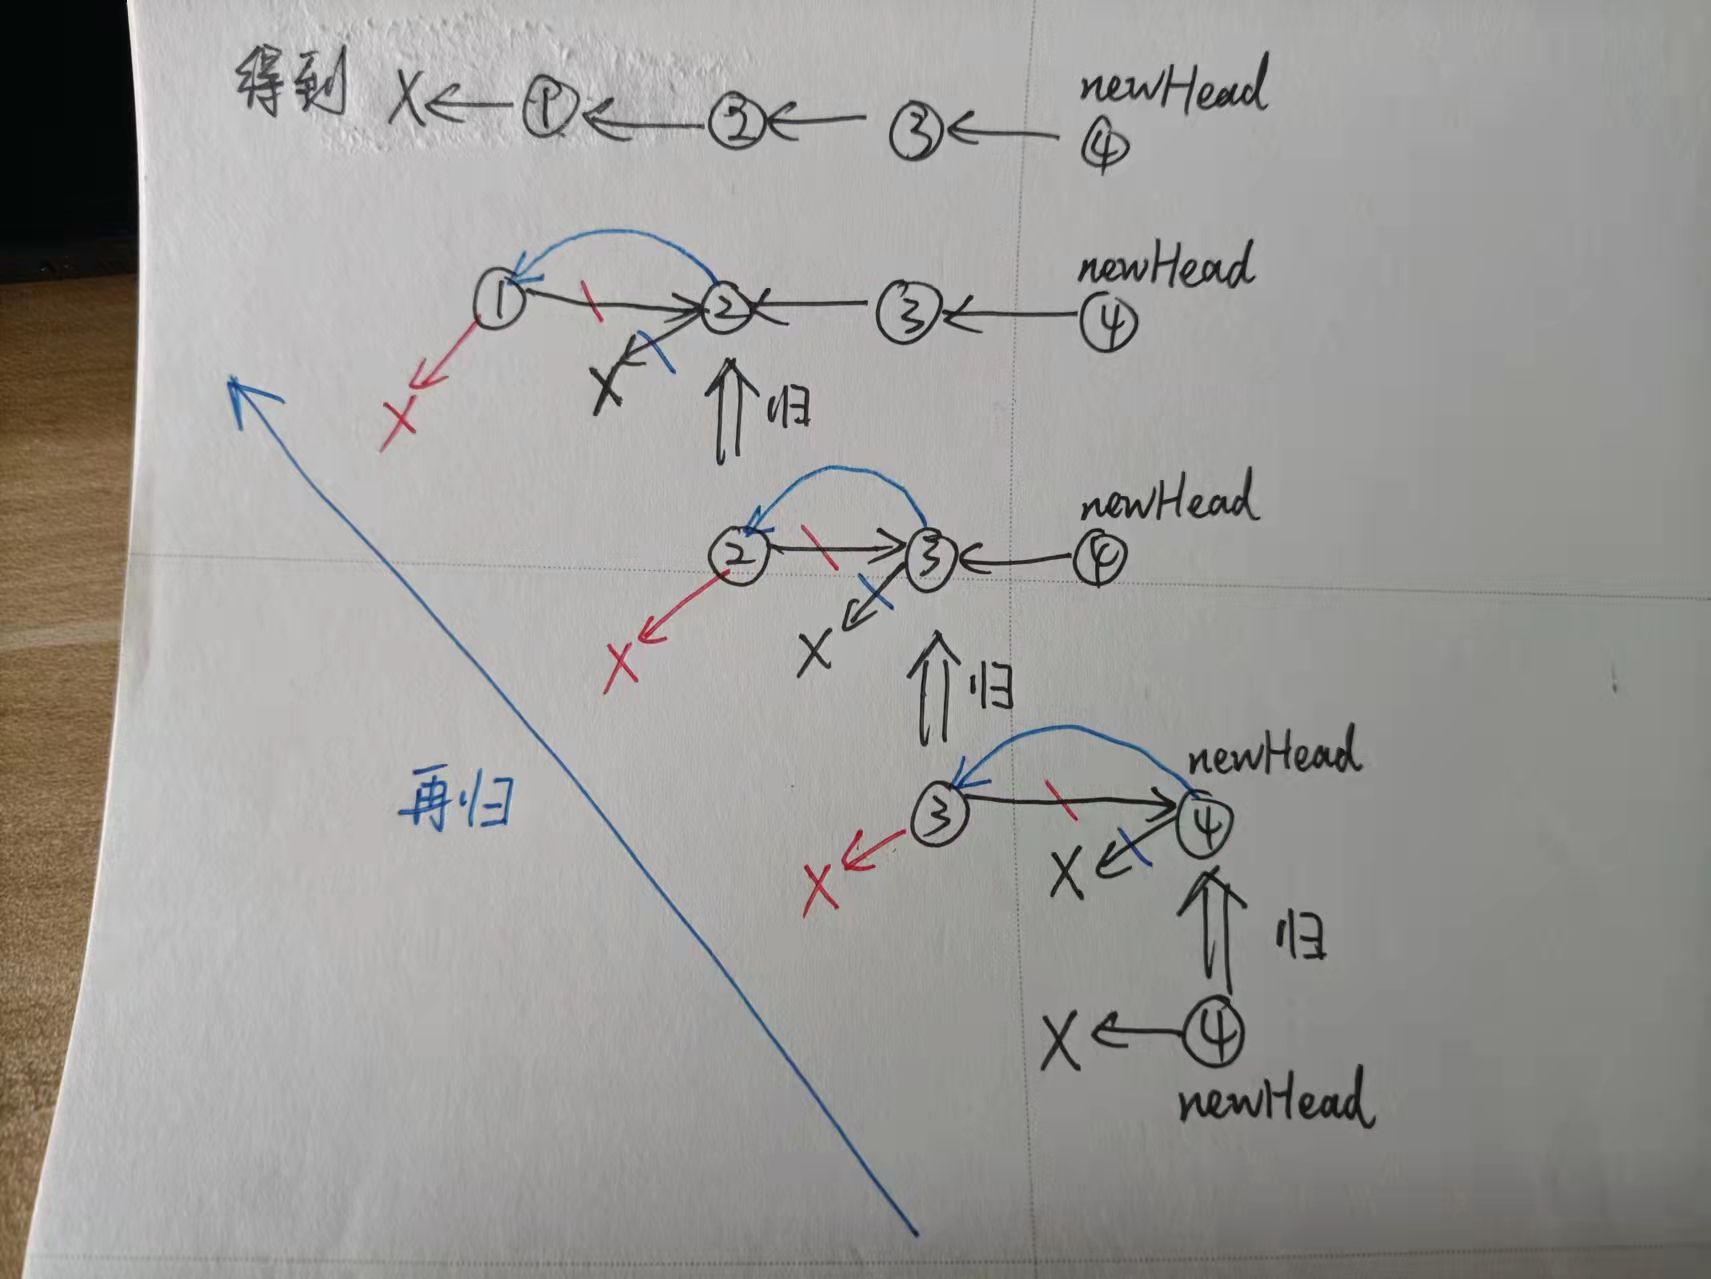 得到 X ← ① ← ② ← ③ ← ④ newHead
① → ② ← ③ ← ④ newHead
X X
归
② → ③ ← ④ newHead
X X
归
③ → ④ newHead
再归
X X
归
X ← ④
newHead